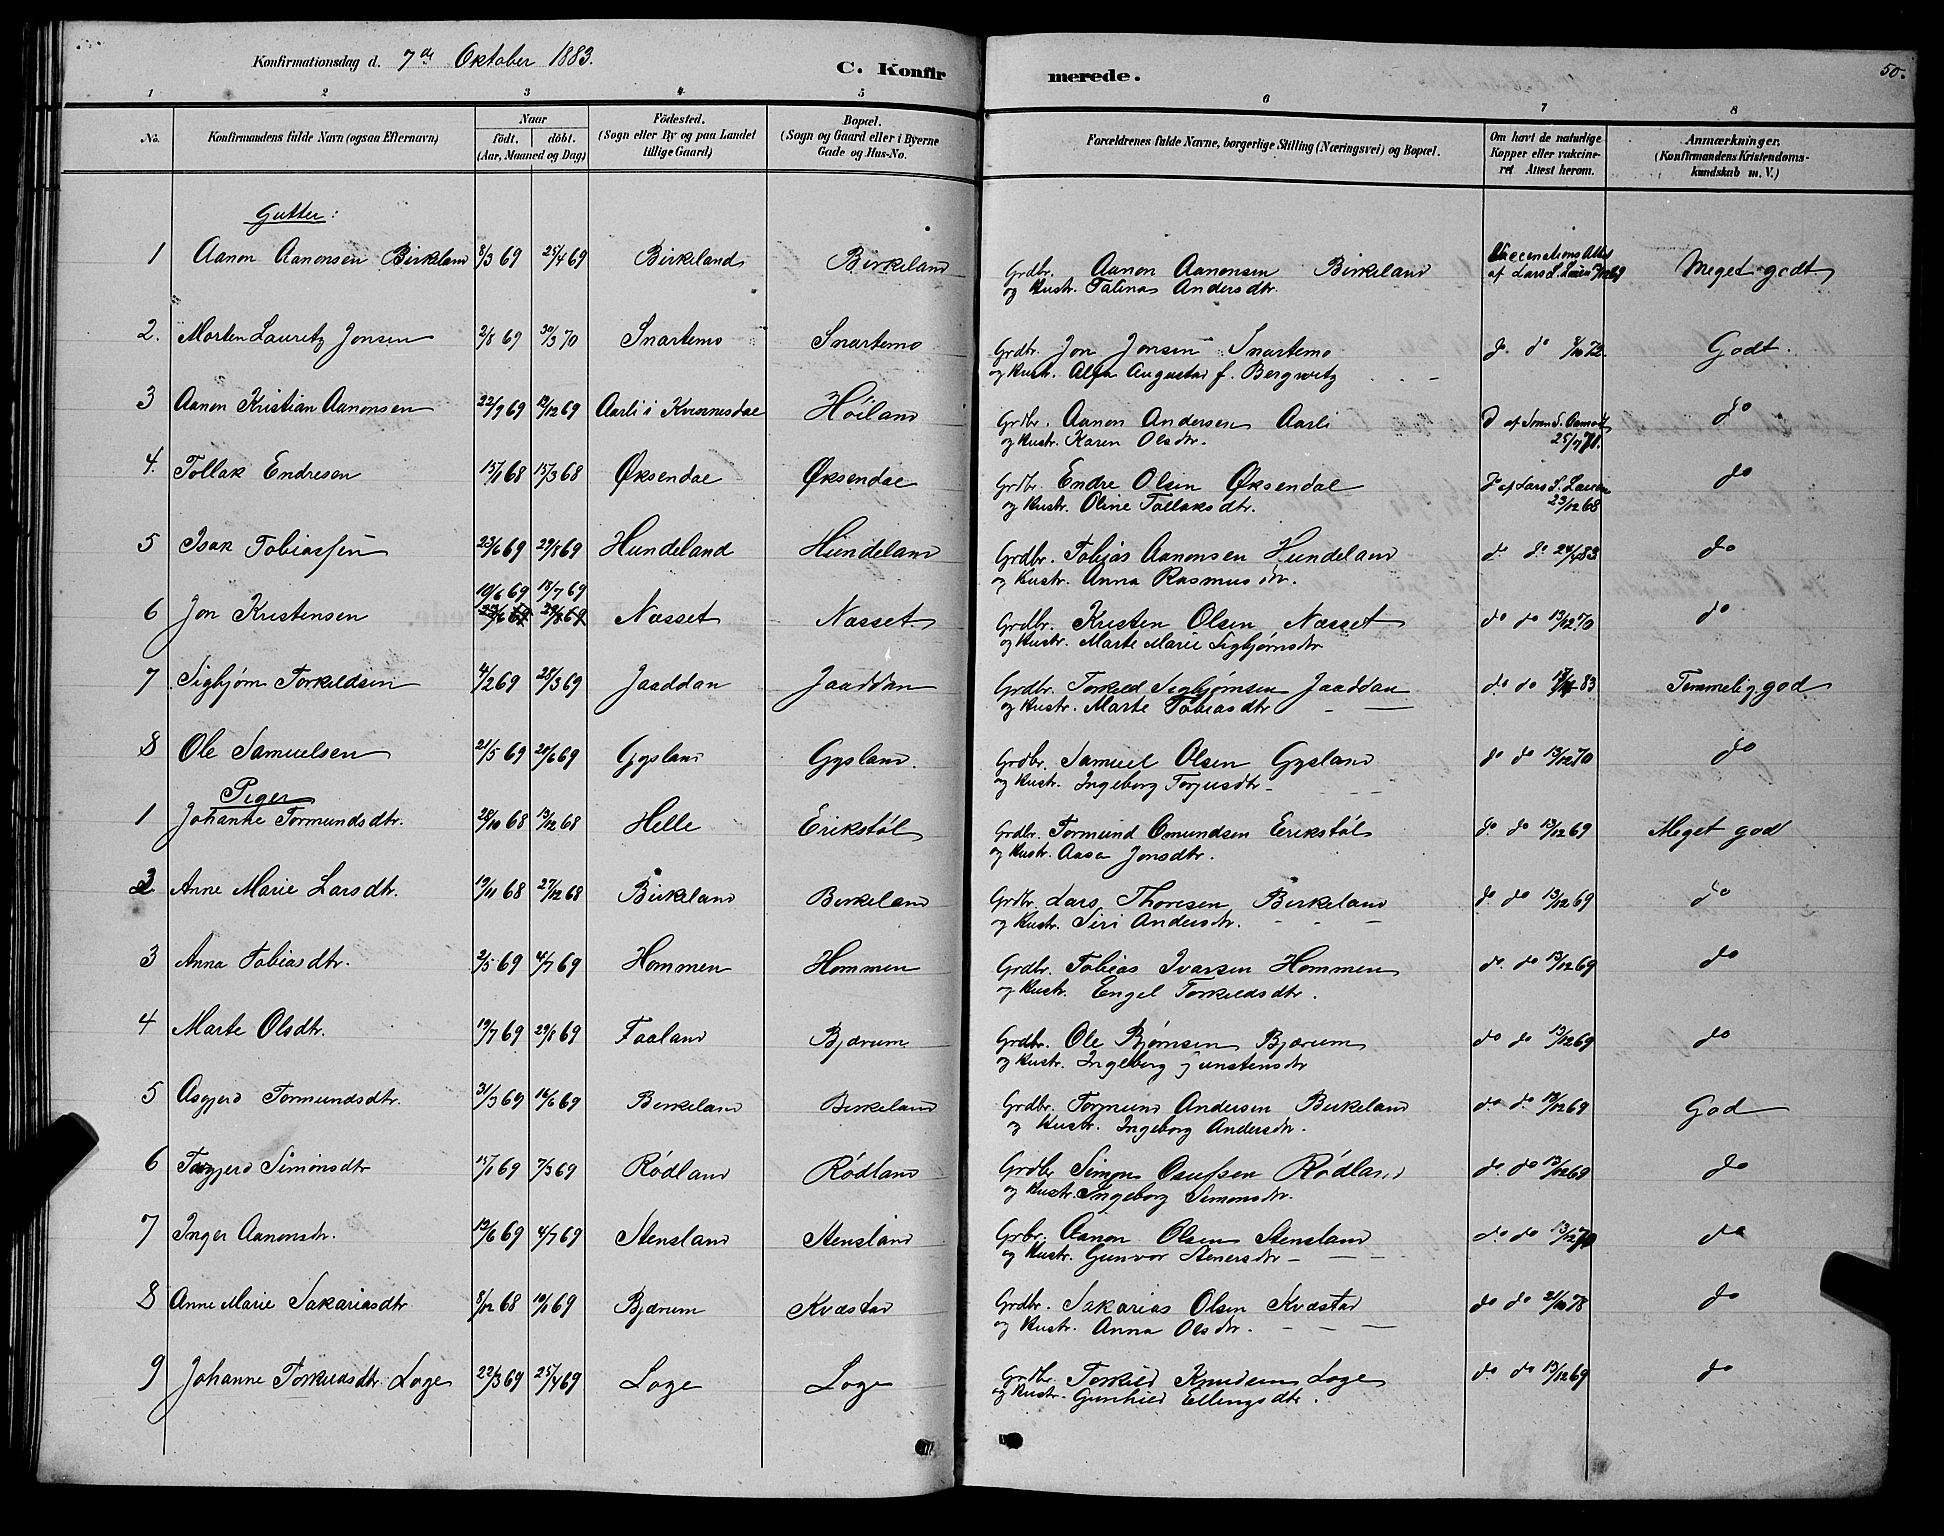 Konfirmationsdag d. 7de Oktober 1883.
C. Konfirmerede.
50.
1 2 3 4 5 6 7 8
No. Konfirmandens fulde Navn (ogsaa Efternavn) Naar født. døbt. (Aar, Maaned og Dag) Fødested. (Sogn eller By og paa Landet tillige Gaard) Bopæl. (Sogn og Gaard eller i Byerne Gade og Hus-No. Forældrenes fulde Navne, borgerlige Stilling (Næringsvei) og Bopæl. Om havt de naturlige Kopper eller vakcineret Attest herom. Anmærkninger. (Konfirmandens Kristendomskundskab m. V.)
Gutter:
1 Aanon Aanonsen Birkeland 8/3 69 25/4 69 Birkeland Birkeland Grdbr. Aanon Aanonsen Birkeland Vaccenations Attest
og Hustr. Talina Andersdtr. af Lars S. Meget godt
2. Morten Lauretz Jonsen 2/8 69 30/3 70 Snartemo Snartemo Grdbr. Jon Jonsen Snartemo do do 72. Godt.
og Hustr. Alfa Augusta f. Bergwitz
3 Aanon Kristian Aanonsen 22/9 69 12/12 69 Aarli i Kvinnesdal Høiland Grdbr. Aanon Andersen Aarli do
og Hustr. Karen Olsdtr. 25/7 71.
4. Tollak Endresen 15/1 68 15/3 68 Øksendal Øksendal Grdbr. Endre Olsen Øksendal do af Lars S. do
og Hustr. Oline Tollaksdtr. 23/12 68
5 Isak Tobiassen 23/6 69 29/8 69 Hundeland Hundeland Grdbr. Tobias Aanonsen Hundeland do do 24/4 83 do
og Hustr. Anna Rasmusdtr.
19/6 69 18/7 69
6 Jon Kristensen 23/6 69 29/8 69 Næsset Næsset Grdbr. Kristen Olsen Næsset do do 13/12 70 do
og Hustr. Marte Marie Sigbjørnsdtr
7 Sigbjørn Torkildsen 4/2 69 28/3 69 Jaaddan Jaaddan Grdbr. Torkild Sigbjørnsen Jaaddan do do 83 Temmelig god
og Hustr. Marte Tobiasdtr
8 Ole Samuelsen 21/5 69 20/6 69 Gysland Gysland. Grdbr. Samuel Olsen Gysland do do 13/12 70 do
og Hustr. Ingeborg Torjusdtr
Piger
1 Johanne Tormundsdtr. 28/10 68 13/12 68 Helle Erikstøl Grdbr. Tormund Omundsen Erikstøl do do 13/12 69 Meget god
og Hustr. Aasa Jonsdtr.
2 Anne Marie Larsdtr. 19/11 68 27/12 68 Birkeland Birkeland Grdbr. Lars Thoresen Birkeland do do 13/12 69 do
og Hustr. Siri Andersdtr.
3 Anna Tobiasdtr. 2/5 69 4/7 69 Hommen Hommen Grdbr. Tobias Ivarsen Hommen do do 13/12 69 do
og Hustr. Engel Torkildsdtr.
4 Marte Olsdtr. 19/7 69 29/8 69 Faaland Bjærum Grdbr. Ole Bjørnsen Bjærum do do 13/12 69 do
og Hustr. Ingeborg Gunstensdtr
5 Asgjerd Tormundsdtr. 31/3 69 16/6 69 Birkeland Birkeland Grdbr. Tormund Andersen Birkeland do do 13/12 69 God
og Hustr. Ingeborg Andersdtr.
6 Torgjerd Simonsdtr 15/1 69 7/3 69 Rødland Rødland Grdbr Simon Osufsen Rødland do do 13/12 69 do
og Hustr. Ingeborg Simonsdtr.
7 Inger Aanonsdtr. 12/6 69 4/7 69 Stensland Stensland Grbr. Aanon Olsen Stensland do do 13/12 70 do
og Hustr. Gunvor Stenersdtr
8 Anne Marie Sakariasdtr 8/12 68 10/1 69 Bjærum Kvæstad Grdbr. Sakarias Olsen Kvæstad do do 21/10 78 do
og Hustr. Anna Olsdtr.
9 Johanne Torkildsdtr. Loge 22/3 69 25/4 69 Loge Loge Grdbr. Torkild Knudsen Loge do do 13/12 69 do
og Hustr. Gunhild Ellingsdtr.